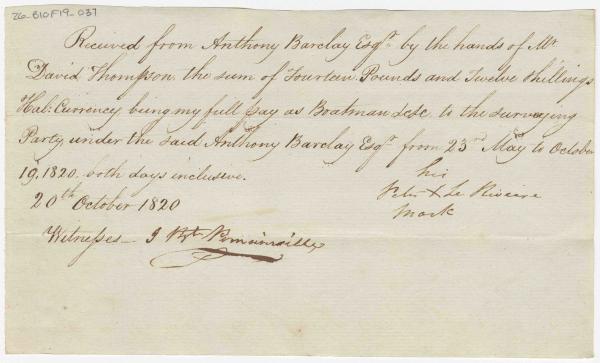 26-B10F19-037
Received from Anthony Barclay Esqr. by the hands of Mr
David Thompson the sum of Fourteen Pounds and Twelve Shillings
Hal: Currency being my full pay as Boatman &c &c to the surveying
Party under the said Anthony Barclay Esqr. from 23rd May to October
19, 1820. both days inclusive.
20th October 1820
his
Peter X La Riviere
Mark
Witnesses